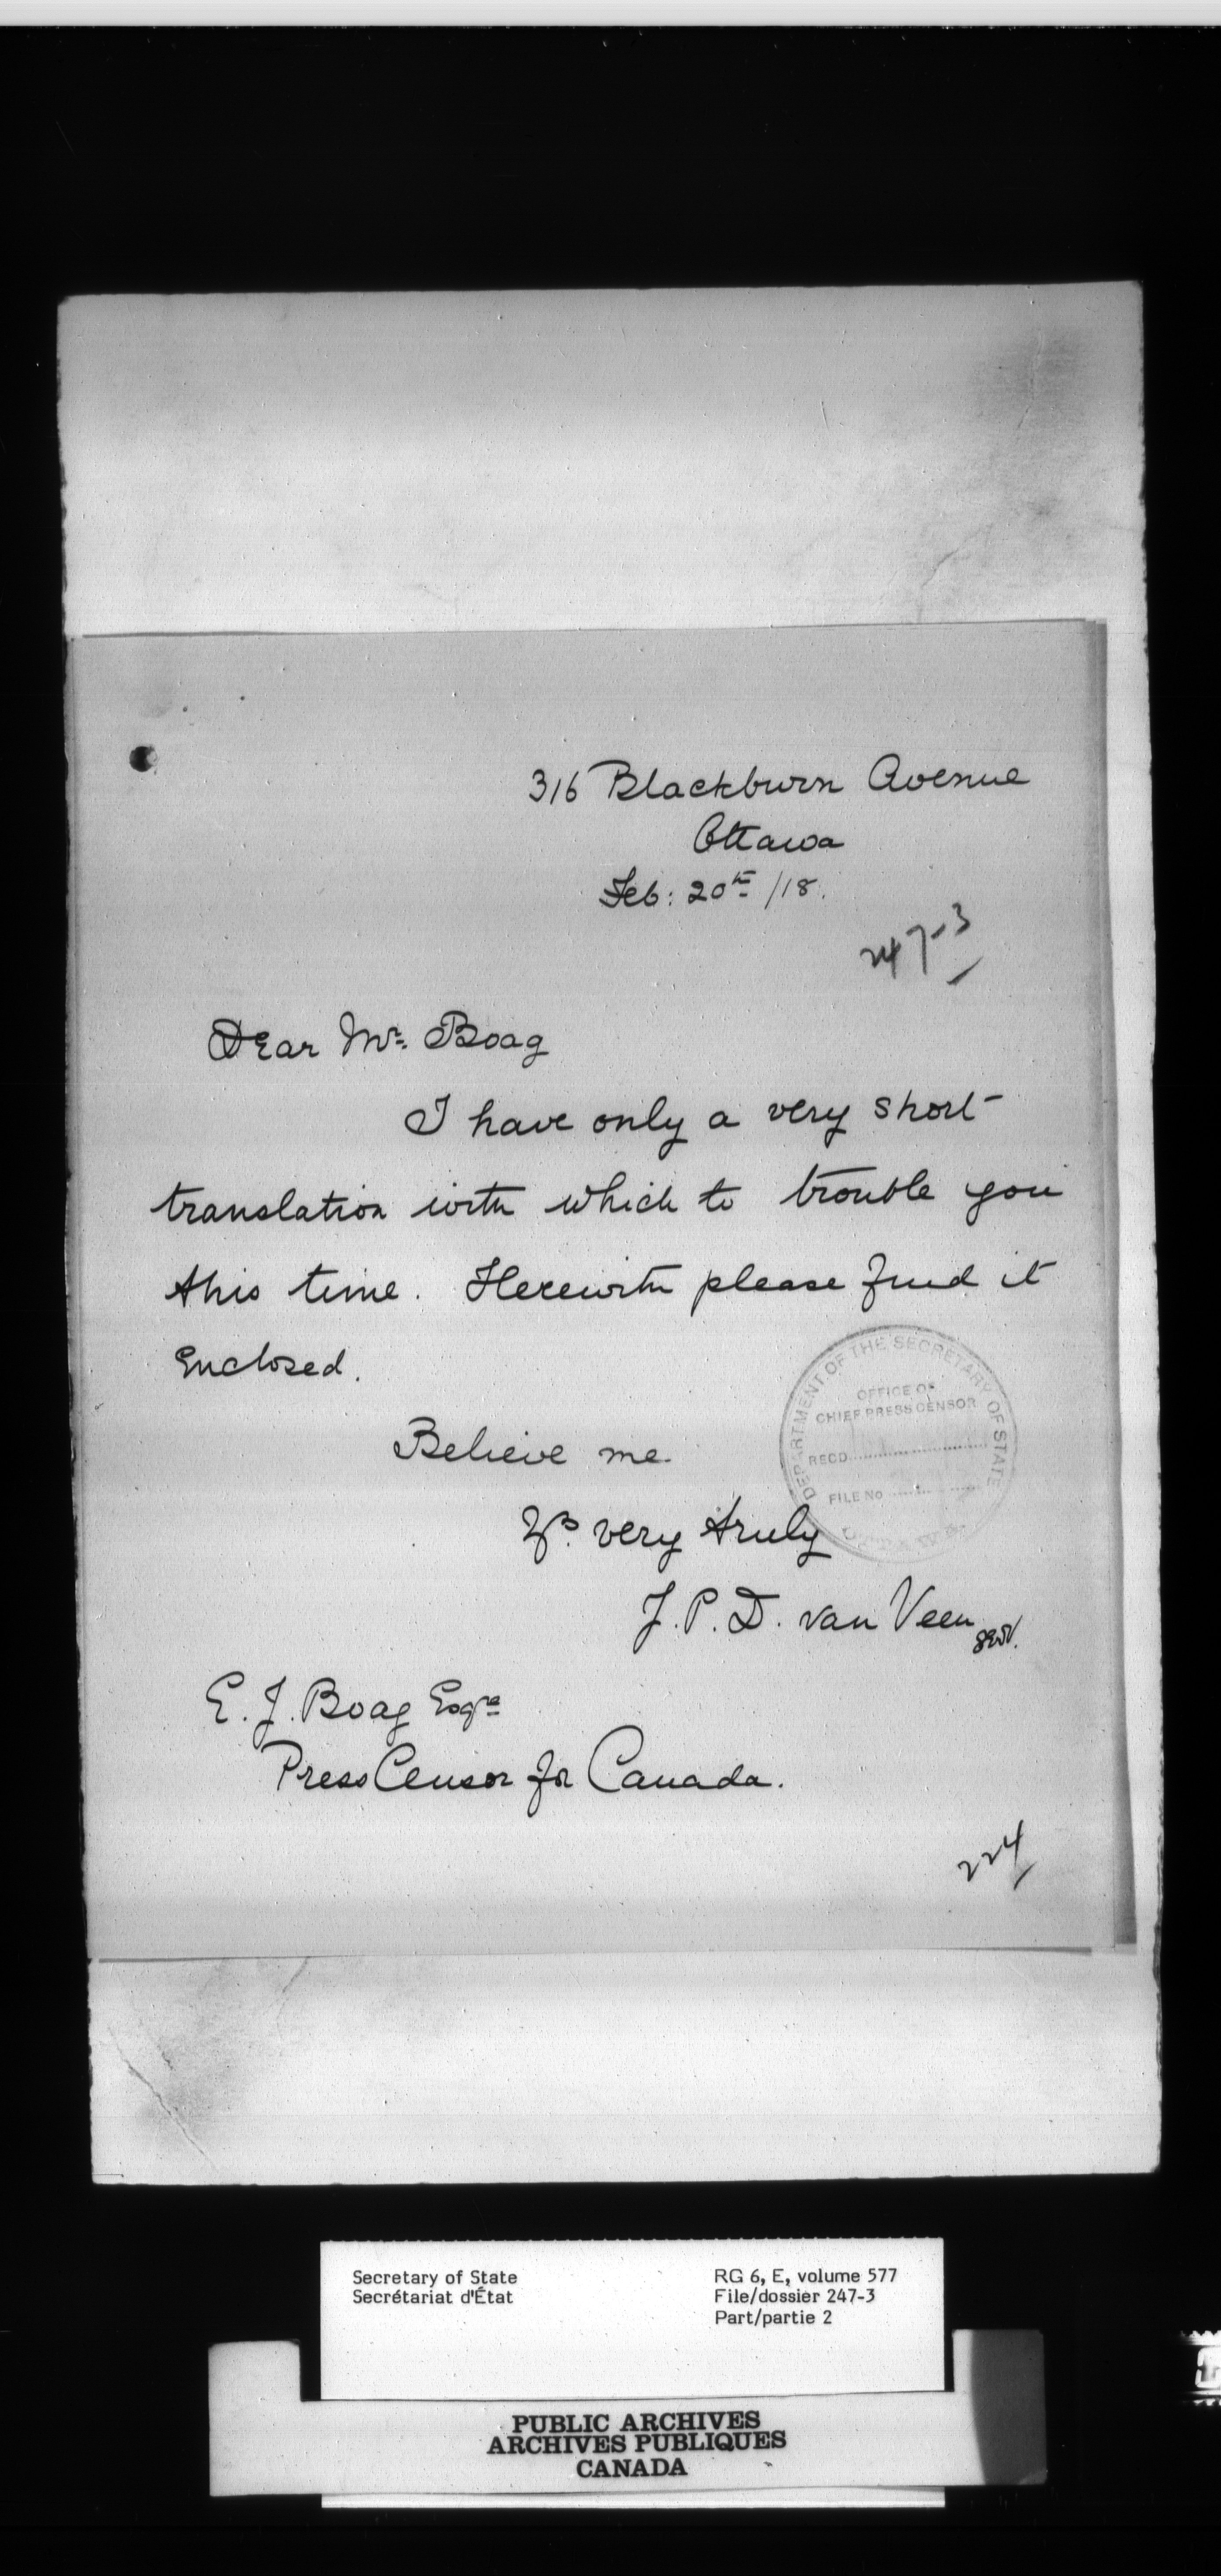 316 Blackburn Avenue
Ottawa
Feb: 20th /18.
247-3
Dear Mr. Boag
I have only a very short
translation with which to trouble you
this time. Herewith please find it
Enclosed.
Believe me
Yrs. very truly
J. P. D. van Veen
E. J. Boag Esqre
Press Censor for Canada.
224
DEPARTMENT OF THE SECRETARY OF STATE
OFFICE OF
CHIEF PRESS CENSOR
RECD
FILE No
OTTAWA
Secretary of State
Secrétariat d'État
RG 6, E, volume 577
File/dossier 247-3
Part/partie 2
PUBLIC ARCHIVES
ARCHIVES PUBLIQUES
CANADA